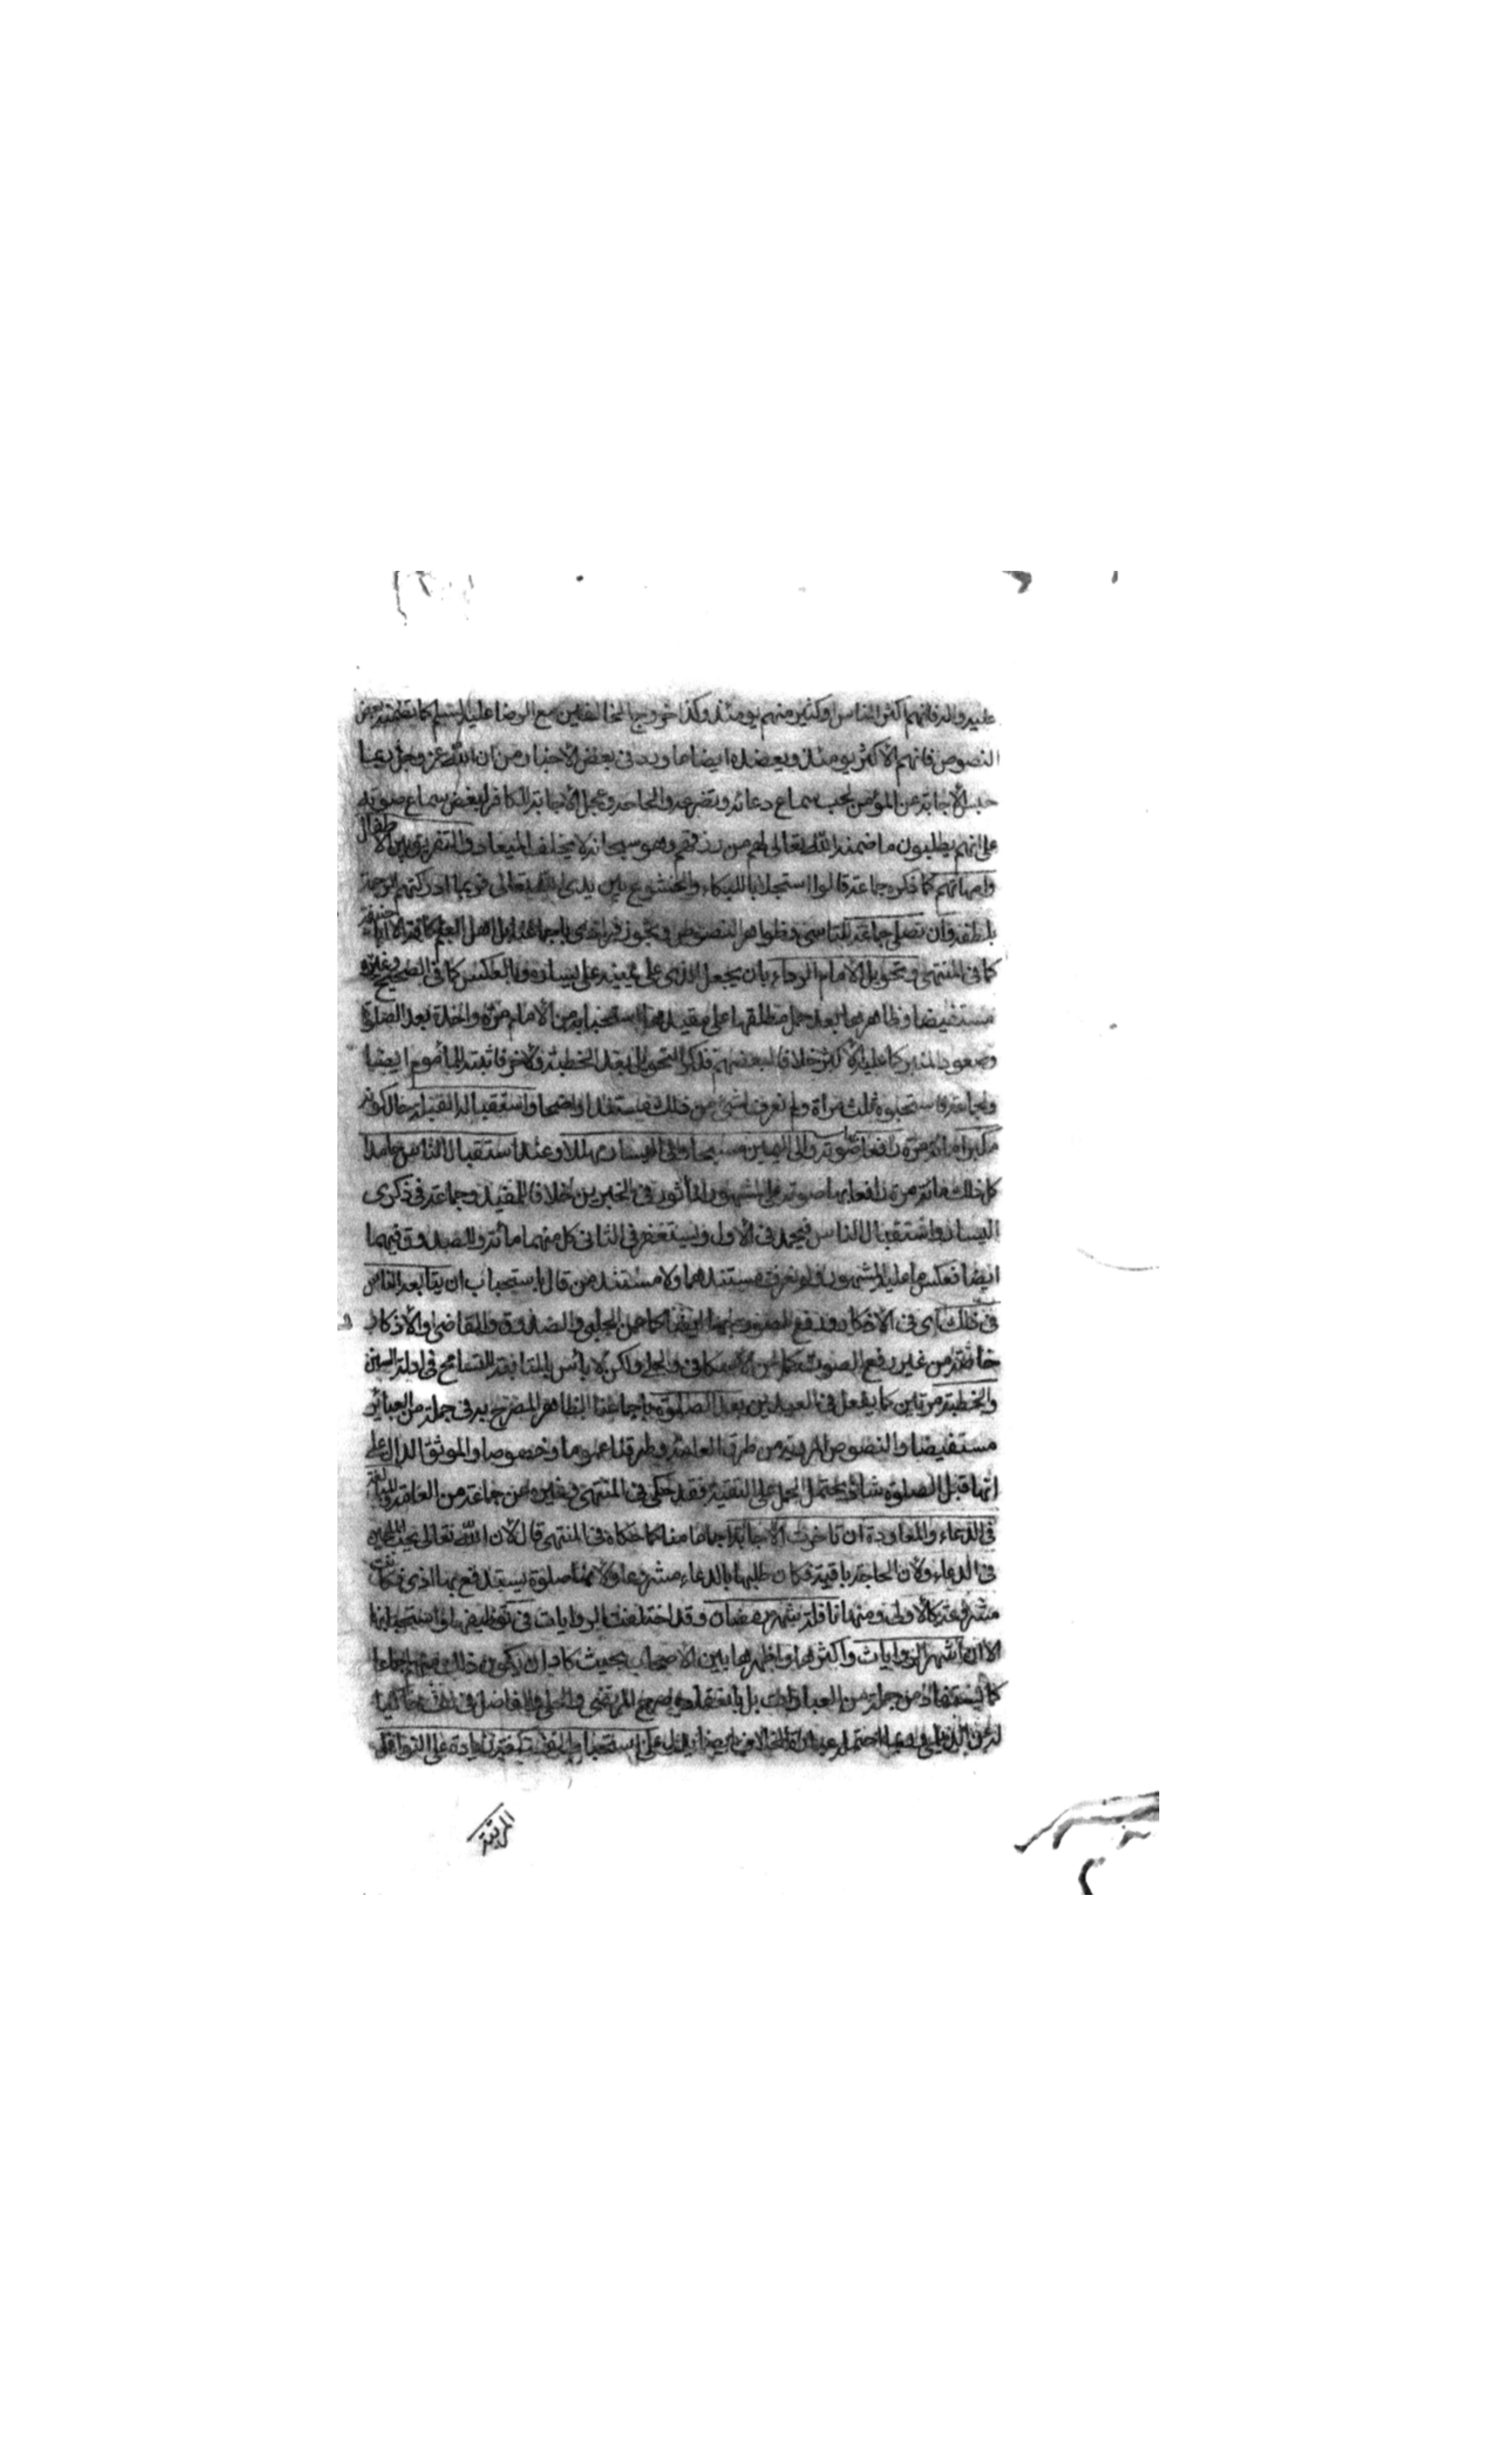 عليه واله فانهم اكثر الناس او كثير منهم يومئذ وكذا خروج المخالفين مع الرضا عليه السلم كما تضمنه بعض
النصوص فانهم الاكثر يومئذ ويعضده ايضا ما ورد فى بعض الاخبار من ان الله عز وجل ربما
حبس الاجابة عن المؤمن لحب سماع دعائه وتضرعه والحاحه وعجل الاجابة للكافر لبغض سماع صوته
على انهم يطلبون ما ضمنه الله تعالى لهم من رزقهم وهو سبحانه لا يخلف الميعاد والتفريق بين الاطفال
وامهاتهم كما ذكره جماعة قالوا استجلابا للبكاء والخشوع بين يدى الله تعالى فربما ادركتهم الرحمة
بلطفه وان تصلى جماعة للتاسى وظواهر النصوص وتجوز فرادى باجماعنا بل اهل العلم كافة الا ابا حنيفة
كما فى المنتهى وتحويل الامام الرداء بان يجعل الذى على يمينه على يساره وبالعكس كما فى الصحيح وغيره
مستفيضا وظاهرها بعد حمل مطلقها على مقيدها استحبابه من الامام مرة واحدة بعد الصلوة
وصعود المنبر كما عليه الاكثر خلافا لبعضهم فذكر التحويل بعد الخطبة ولاخر فاثبته للمأموم ايضا
ولجماعة فاستحبوه ثلث مراة ولم نعرف لشئ من ذلك مستندا واضحا واستقبال القبلة حال كونه
مكبرا مائة مرة رافعا صوته والى اليمين مسبحا والى اليسار مهللا وعند استقبال الناس حامدا
كل ذلك مائة مرة رافعا بها صوته على المشهور المأثور فى الخبرين خلافا للمفيد وجماعة فى ذكرى
اليسار واستقبال الناس فيحمد فى الاول ويستغفر فى الثانى كل منهما مائة والصدوق فيهما
ايضا فعكس ما عليه المشهور ولم نعرف مستندهما ولا مستند من قال باستحباب ان يتابعه الناس
فى ذلك اى فى الاذكار ورفع الصوت بها ايضا كما عن الحلبى والصدوق والقاضى والاذكار
خاصة من غير رفع الصوت كما عن الاسكافى والحلى ولكن لا بأس بالمتابعة للتسامح فى ادلة السنن
والخطبة مرتين كما يفعل فى العيدين بعد الصلوة باجماعنا الظاهر المصرح به فى جملة من العبائر
مستفيضا والنصوص المروية من طرق العامة وطرقنا عموما وخصوصا والموثق الدال على
انها قبل الصلوة شاذ يحتمل الحمل على التقية فقد حكى فى المنتهى وغيره عن جماعة من العامة والمبالغة
فى الدعاء والمعاودة ان تاخرت الاجابة اجماعا منا كما حكاه فى المنتهى قال لان الله تعالى يحب الملحين
فى الدعاء ولان الحاجة باقية فكان طلبها بالدعاء مشروعا ولانها صلوة يستدفع بها اذى فكانت
مشروعة كالاولى ومنها نافلة شهر رمضان وقد اختلفت الروايات فى توظيفها واستحبابها
الا ان اشهر الروايات واكثرها واظهرها بين الاصحاب بحيث كاد ان يكون ذلك منهم اجماعا
كما يستفاد من جملة من العبارات بل بانعقاده صرح المرتضى والحلى والفاضل فى المنتهى حاكيا
له عن الديلمى وعبائر عبارة الخلاف ايضا يدل على استحباب الف ركعة زيادة على النوافل
المرتبة